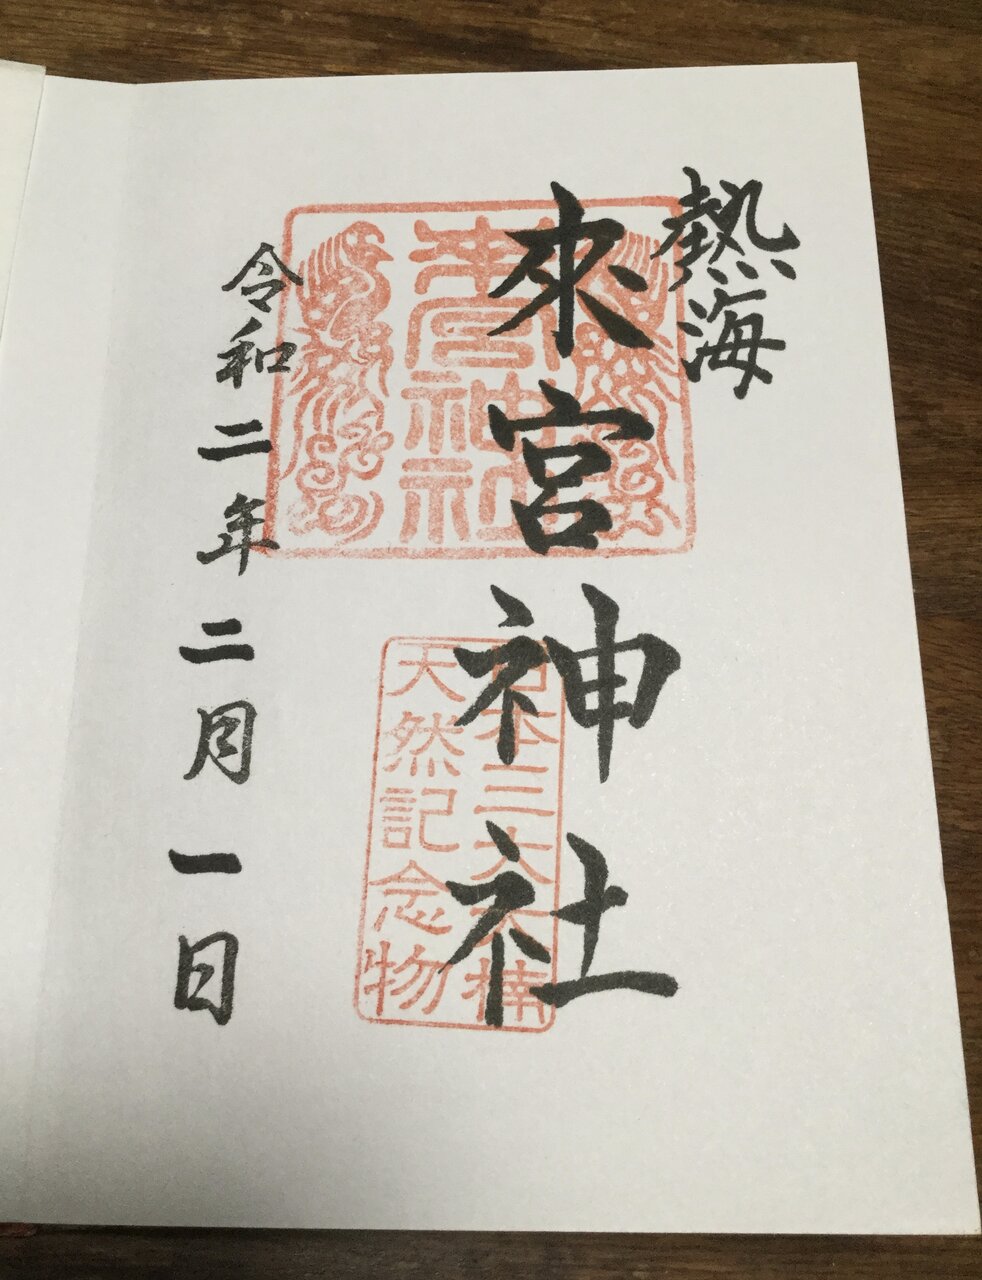 熱海
來宮神社
來宮神社
日本三大大楠
天然記念物
令和二年二月一日